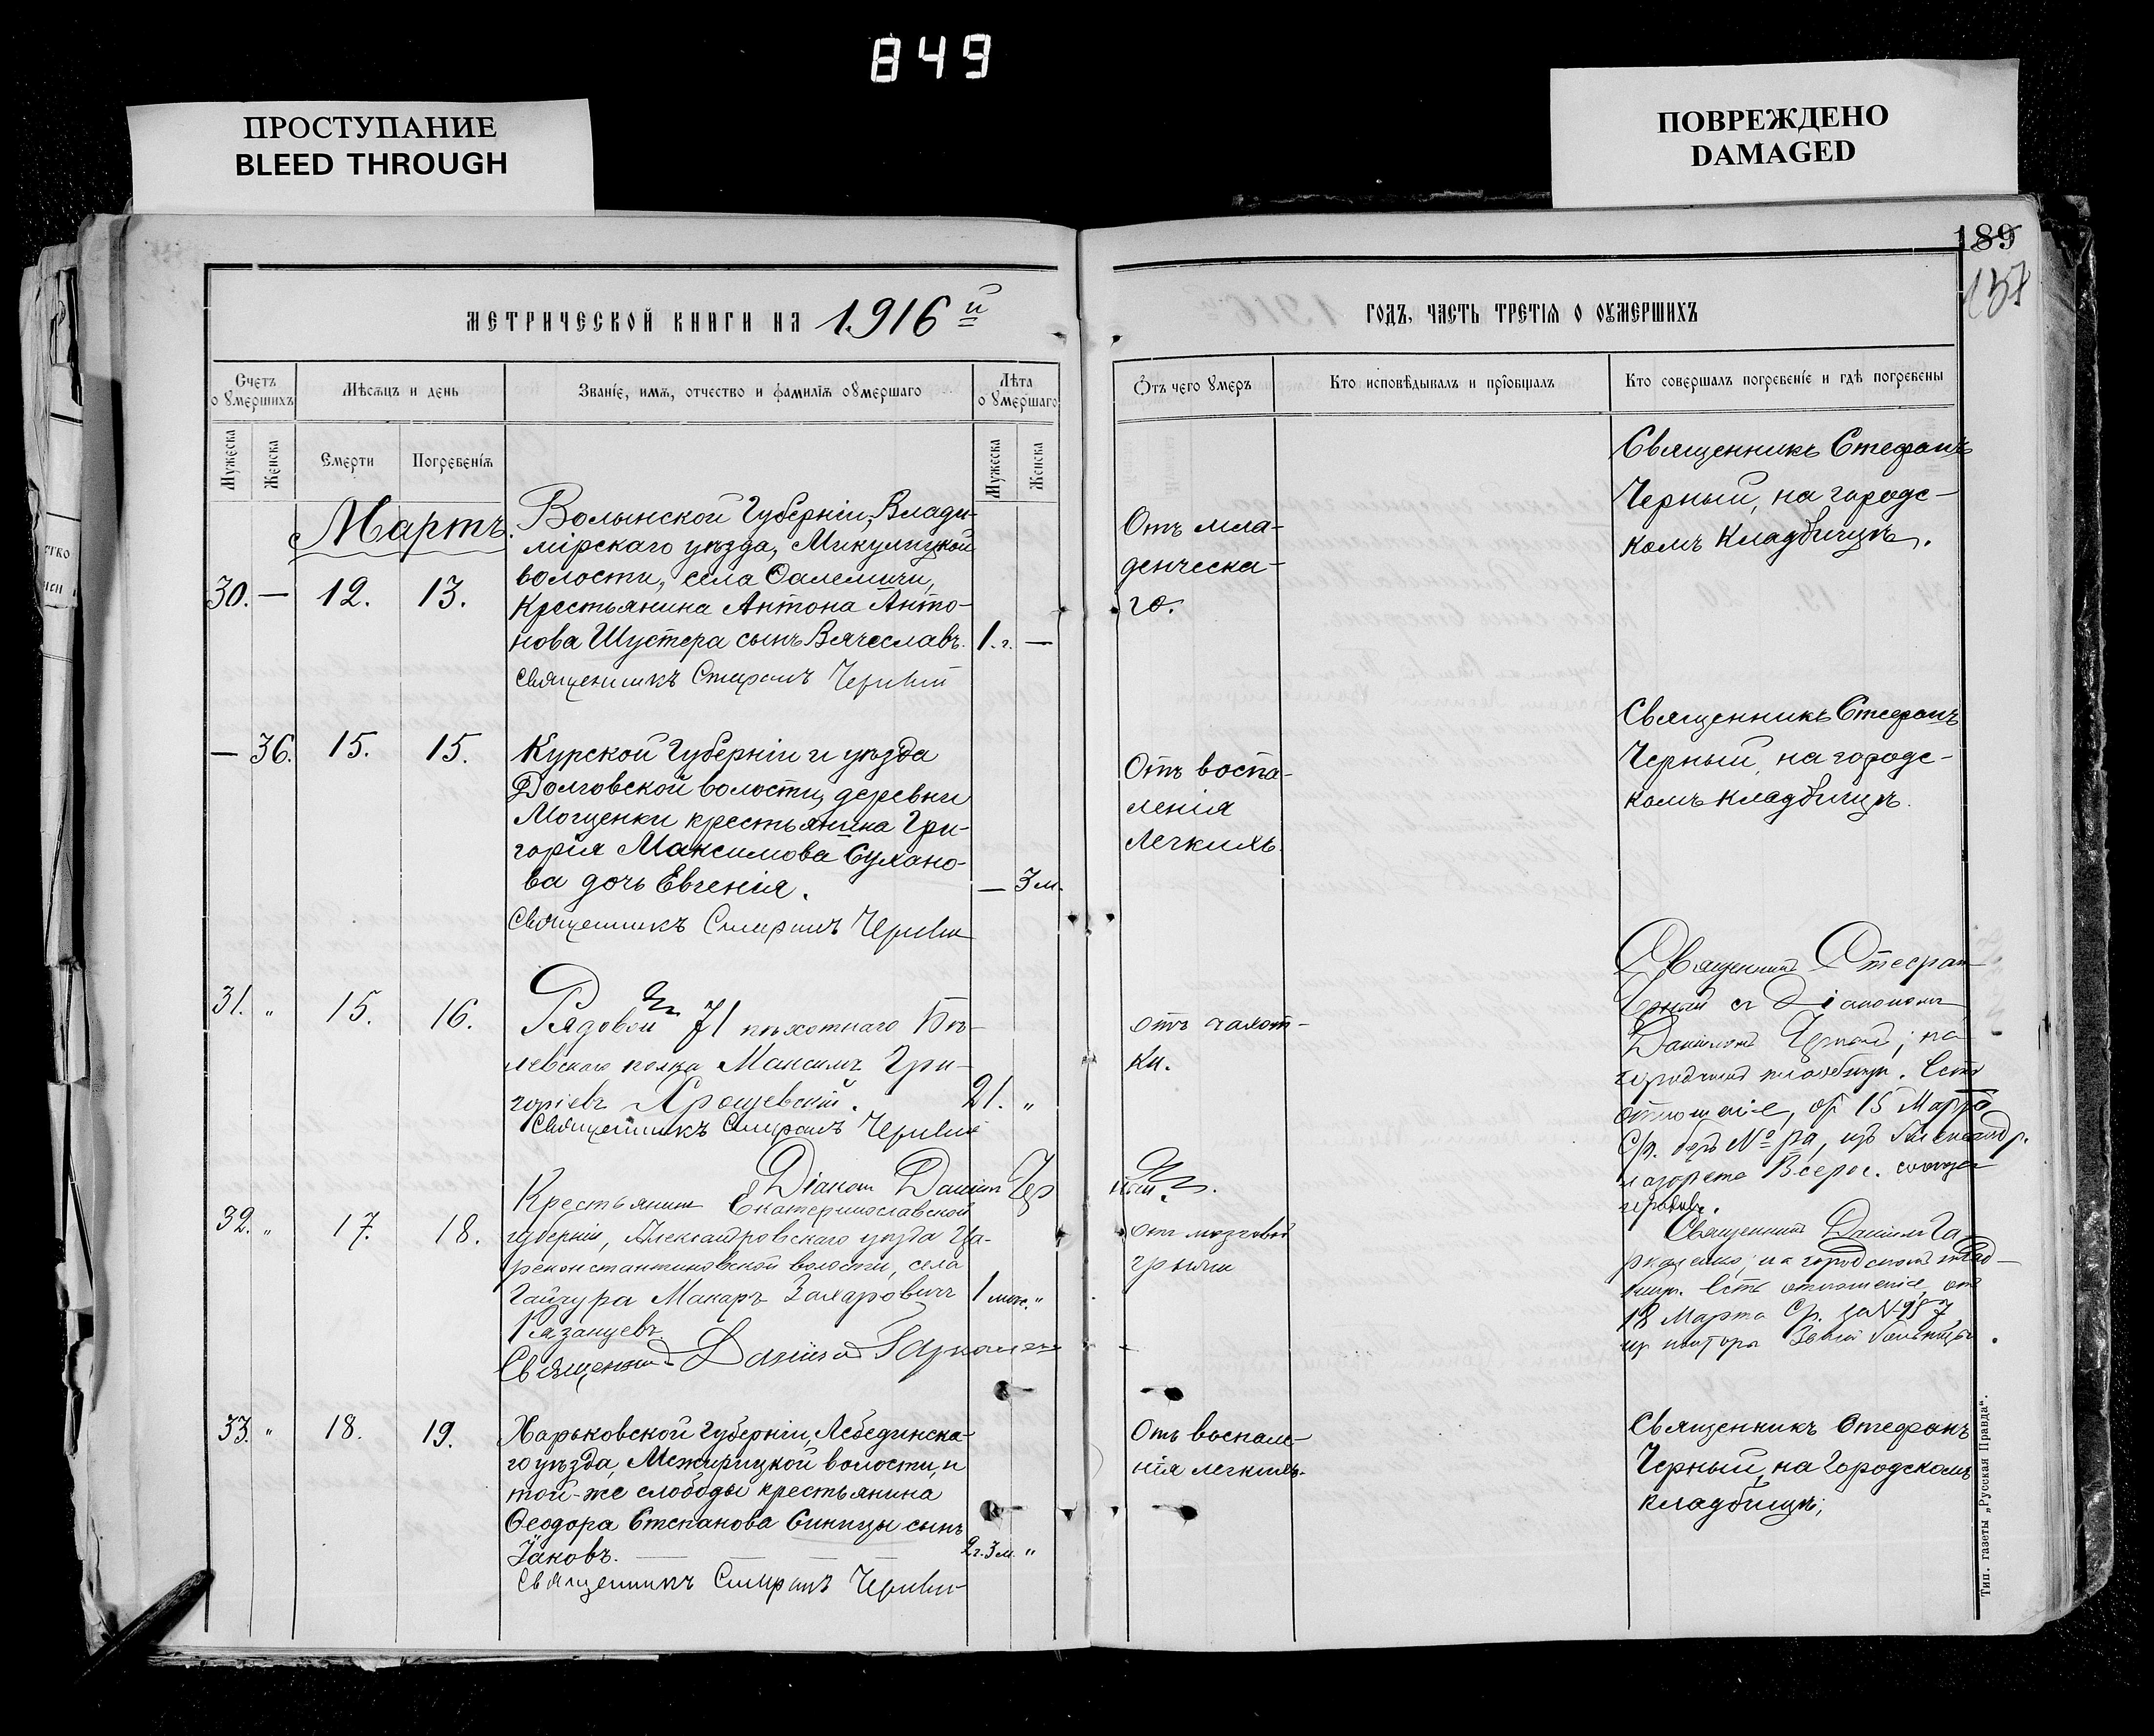 849
ПРОСТУПАНИЕ
BLEED THROUGH
ПОВРЕЖДЕНО
DAMAGED
189
137
МЕТРИЧЕСКОЙ КНИГИ НА 1916 й
ГОДЪ, ЧАСТЬ ТРЕТІѦ О ОУМЕРШИХЪ
Счетъ о умершихъ
Мѣсѧцъ и день
Званіе, имѧ, отчество и фамиліѧ оумершаго
Лѣта о умершаго
Отъ чего умеръ
Кто исповѣдывалъ и пріобщалъ
Кто совершалъ погребеніе и гдѣ погребены
Мужеска
Женска
Смерти
Погребеніѧ
Мужеска
Женска
Мартъ.
30. — 12. 13.
Волынской Губерніи, Влади-
мірскаго уѣзда, Микулицкой
волости, села
Крестьянина Антона Анто-
нова Шустера сынъ Вячеславъ. 1. г. —
Священникъ Стефанъ Черный
Отъ мла-
денческа-
го.
Священникъ Стефанъ
Черный, на городс-
комъ Кладбищѣ.
— 36. 15. 15.
Курской Губерніи и уѣзда
Долговской волости, деревни
Мощенки крестьянина Гри-
горія Максимова Сухано-
ва дочь Евгенія. — 3 м.
Священникъ Стефанъ Черный
Отъ воспа-
ленія
Легкихъ.
Священникъ Стефанъ
Черный, на городс-
комъ кладбищѣ.
31. " 15. 16.
Рядовой 71 пѣхотнаго Бѣ-
левскаго полка Максимъ Гри-
горіевъ Ярошевскій. 21. "
Священникъ Стефанъ Черный
Діаконъ Даніилъ Чер
ный.
отъ чахот-
ки.
Священникъ Стефанъ
Черный съ Діакономъ
Даніиломъ Чернымъ; на
городскомъ кладбищѣ. Есть
отношеніе, отъ 15 Марта
с/г. безъ № ра, изъ Александр.
лазарета Всерос. союза
городовъ.
32. " 17. 18.
Крестьянинъ Екатеринославской
губерніи, Александровскаго уѣзда Ца-
реконстантиновской волости, села
Гайчура Макаръ Захаровичъ 1 мѣс. "
Казанцевъ.
Священникъ Даніилъ
отъ мозговой
грыжи
Священникъ Даніилъ
на городскомъ клад-
бищѣ. Есть отношеніе, отъ
18 Марта с/г. за № 987
изъ конторы больницы.
33. " 18. 19.
Харьковской Губерніи, Лебединска-
го уѣзда, Межирицкой волости, и
той-же слободы крестьянина
Ѳеодора Степанова Синицы сынъ
Іаковъ. 2 г. 3 м. "
Священникъ Стефанъ Черный
Отъ воспале-
нія легкихъ.
Священникъ Стефанъ
Черный, на Городскомъ
кладбищѣ;
Тип. газеты „Русская Правда“.